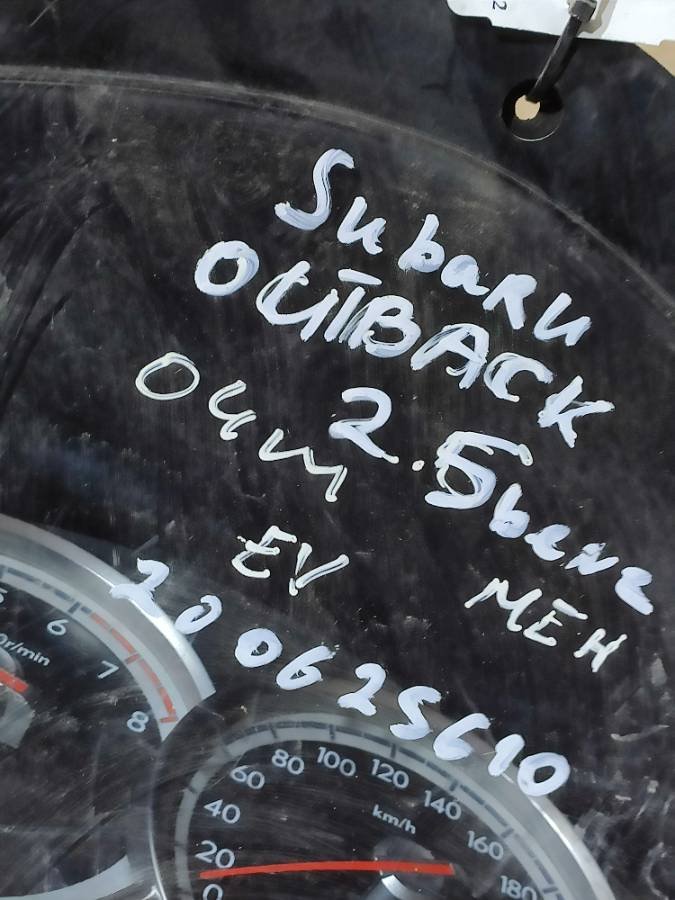 2
Subaru
OUTBACK
04m 2.5 bene
EV MEH
200625610
6
7
8
0r/min
0
20
40
60
80
100
120
140
160
180
km/h